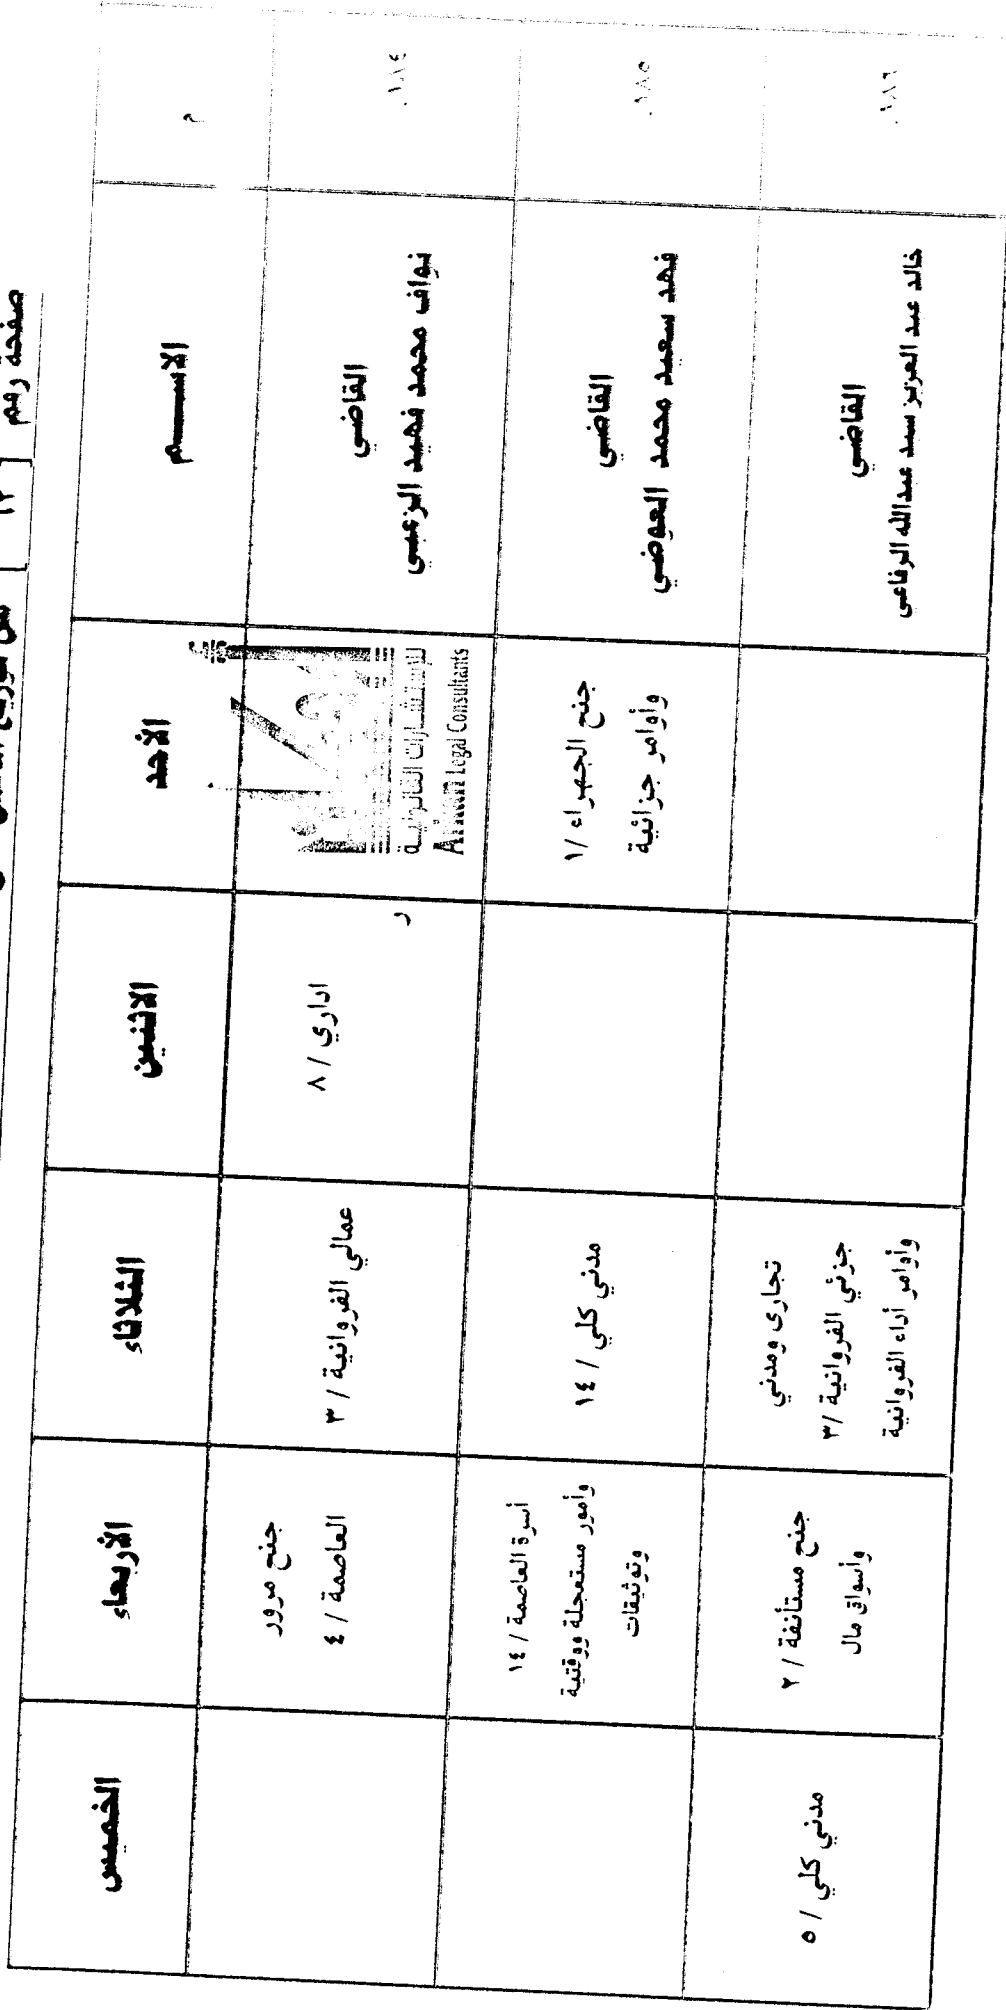 صفحة رقم [ ١٢ ]
م
الاســـــم
الأحد
الاثنين
الثلاثاء
الأربعاء
الخميس
١٨٤.
القاضي
نواف محمد فهيد الزعبي
للإستشارات القانونيـة
Arkan Legal Consultants
اداري / ٨
عمالي الفروانية / ٣
جنح مرور
العاصمة / ٤
١٨٥.
القاضي
فهد سعيد محمد العوضي
جنح الجهراء /١
وأوامر جزائية
مدني كلي / ١٤
أسرة العاصمة / ١٤
وأمور مستعجلة ووقتية
وتوثيقات
١٨٦.
القاضي
خالد عبد العزيز سيد عبدالله الرفاعي
تجاري ومدني
جزئي الفروانية /٣
وأوامر أداء الفروانية
جنح مستأنفة / ٢
وأسواق مال
مدني كلي / ٥